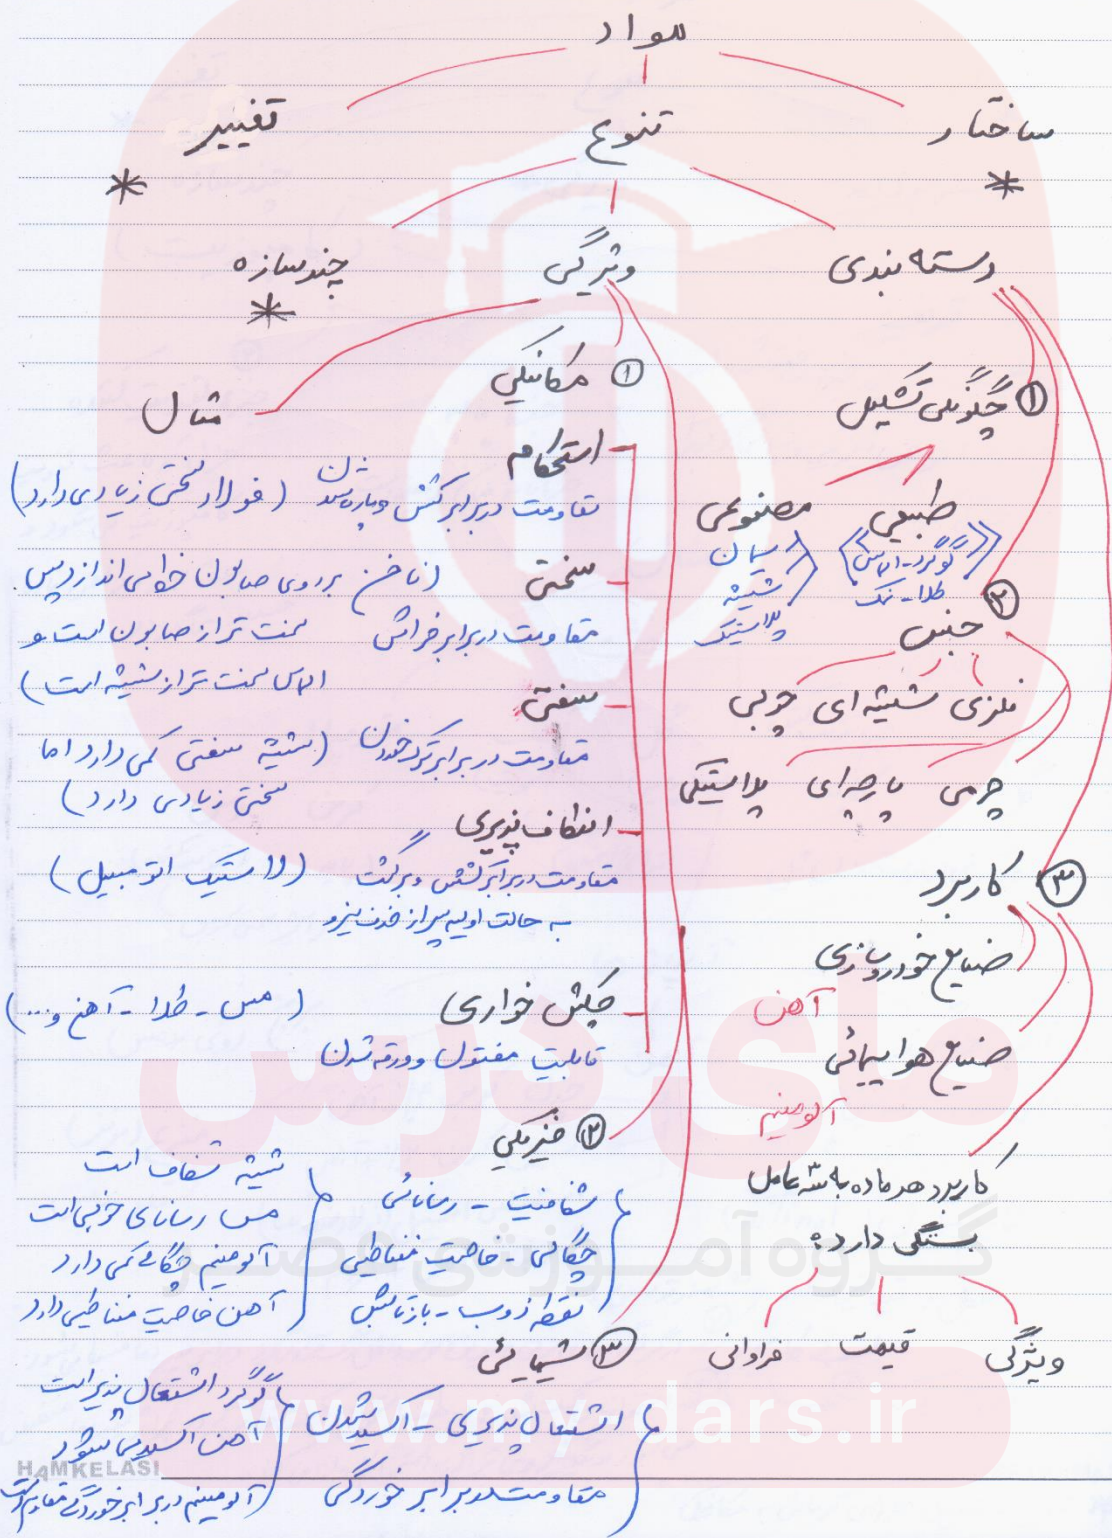 مواد
ساختار
تنوع
تغییر
*
*
دسته بندی
ویژگی
چندسازه
*
① چگونگی تشکیل
طبیعی
مصنوعی
گوگرد - الماس
طلا - نمک
سیمان
شیشه
پلاستیک
② جنس
فلزی شیشه ای چوبی
چرمی پارچه ای پلاستیکی
③ کاربرد
صنایع خودروسازی
آهن
صنایع هواپیمائی
آلومینیم
کاربرد هر ماده به سه عامل
بستگی دارد:
ویژگی قیمت فراوانی
① مکانیکی
مثال
استحکام
مقاومت در برابر کشش و پاره شدن (فولاد سختی زیادی دارد)
سختی
مقاومت در برابر خراش
(ناخن بر روی صابون خط می اندازد پس
سخت تر از صابون است و
الماس سخت تر از شیشه است)
سفتی
مقاومت در برابر ترک خوردن (شیشه سفتی کمی دارد اما
سختی زیادی دارد)
انعطاف پذیری
مقاومت در برابر کشش و برگشت (لاستیک اتومبیل)
به حالت اولیه پس از حذف نیرو
چکش خواری
(مس - طلا - آهن و...)
قابلیت مفتول و ورقه شدن
② فیزیکی
شفافیت - رسانائی
چگالی - خاصیت مغناطیسی
نقطه ذوب - بازتابش
شیشه شفاف است
مس رسانای خوبی است
آلومینیم چگالی کمی دارد
آهن خاصیت مغناطیسی دارد
③ شیمیائی
اشتعال پذیری - اکسید شدن
مقاومت در برابر خوردگی
گوگرد اشتعال پذیر است
آهن اکسید می شود
آلومینیم در برابر خوردگی مقاوم است
مای درس
گروه آموزشی عصر
www.my-dars.ir
HAMKELASI